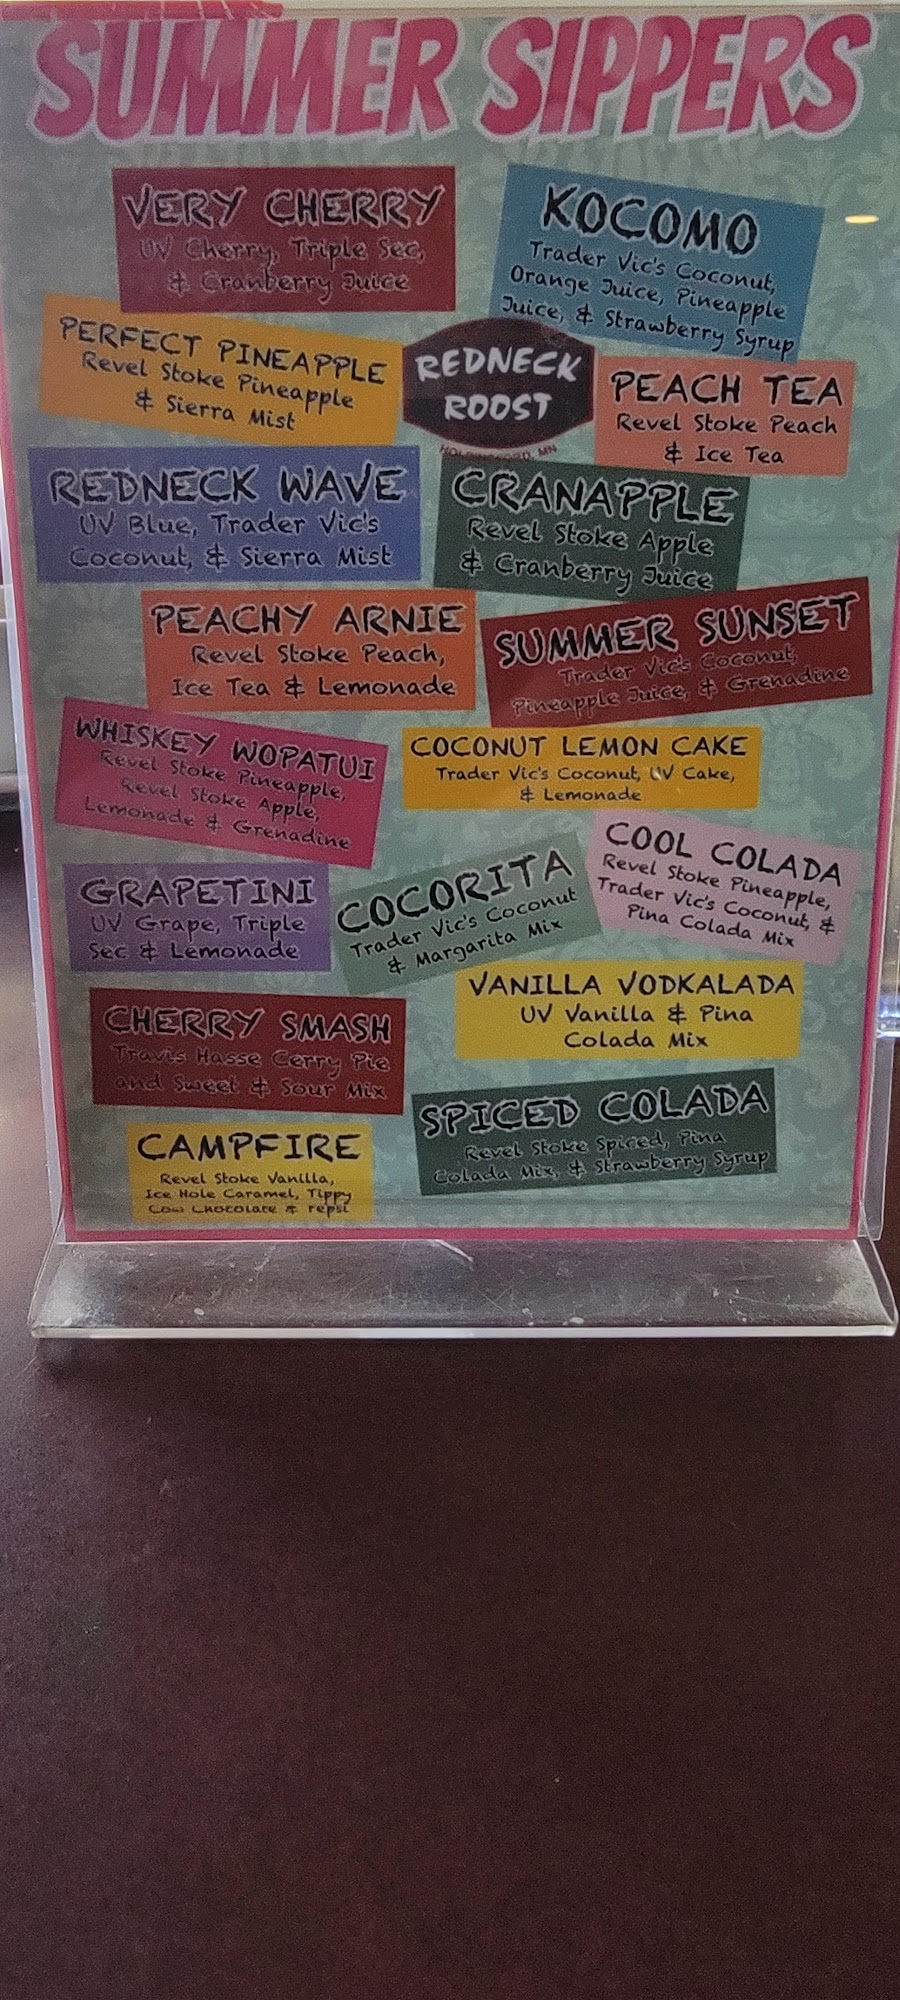 SUMMER SIPPERS
VERY CHERRY
UV Cherry, Triple Sec,
& Cranberry Juice
KOCOMO
Trader Vic's Coconut,
Orange Juice, Pineapple
Juice, & Strawberry Syrup
PERFECT PINEAPPLE
Revel Stoke Pineapple
& Sierra Mist
REDNECK
ROOST
HOLDINGFORD, MN
PEACH TEA
Revel Stoke Peach
& Ice Tea
REDNECK WAVE
UV Blue, Trader Vic's
Coconut, & Sierra Mist
CRANAPPLE
Revel Stoke Apple
& Cranberry Juice
PEACHY ARNIE
Revel Stoke Peach,
Ice Tea & Lemonade
SUMMER SUNSET
Trader Vic's Coconut,
Pineapple Juice, & Grenadine
WHISKEY WOPATUI
Revel Stoke Pineapple,
Revel Stoke Apple,
Lemonade & Grenadine
COCONUT LEMON CAKE
Trader Vic's Coconut, UV Cake,
& Lemonade
GRAPETINI
UV Grape, Triple
Sec & Lemonade
COCORITA
Trader Vic's Coconut
& Margarita Mix
COOL COLADA
Revel Stoke Pineapple,
Trader Vic's Coconut, &
Pina Colada Mix
VANILLA VODKALADA
UV Vanilla & Pina
Colada Mix
CHERRY SMASH
Travis Hasse Cerry Pie
and Sweet & Sour Mix
SPICED COLADA
Revel Stoke Spiced, Pina
Colada Mix, & Strawberry Syrup
CAMPFIRE
Revel Stoke Vanilla,
Ice Hole Caramel, Tippy
Cow Chocolate & Pepsi